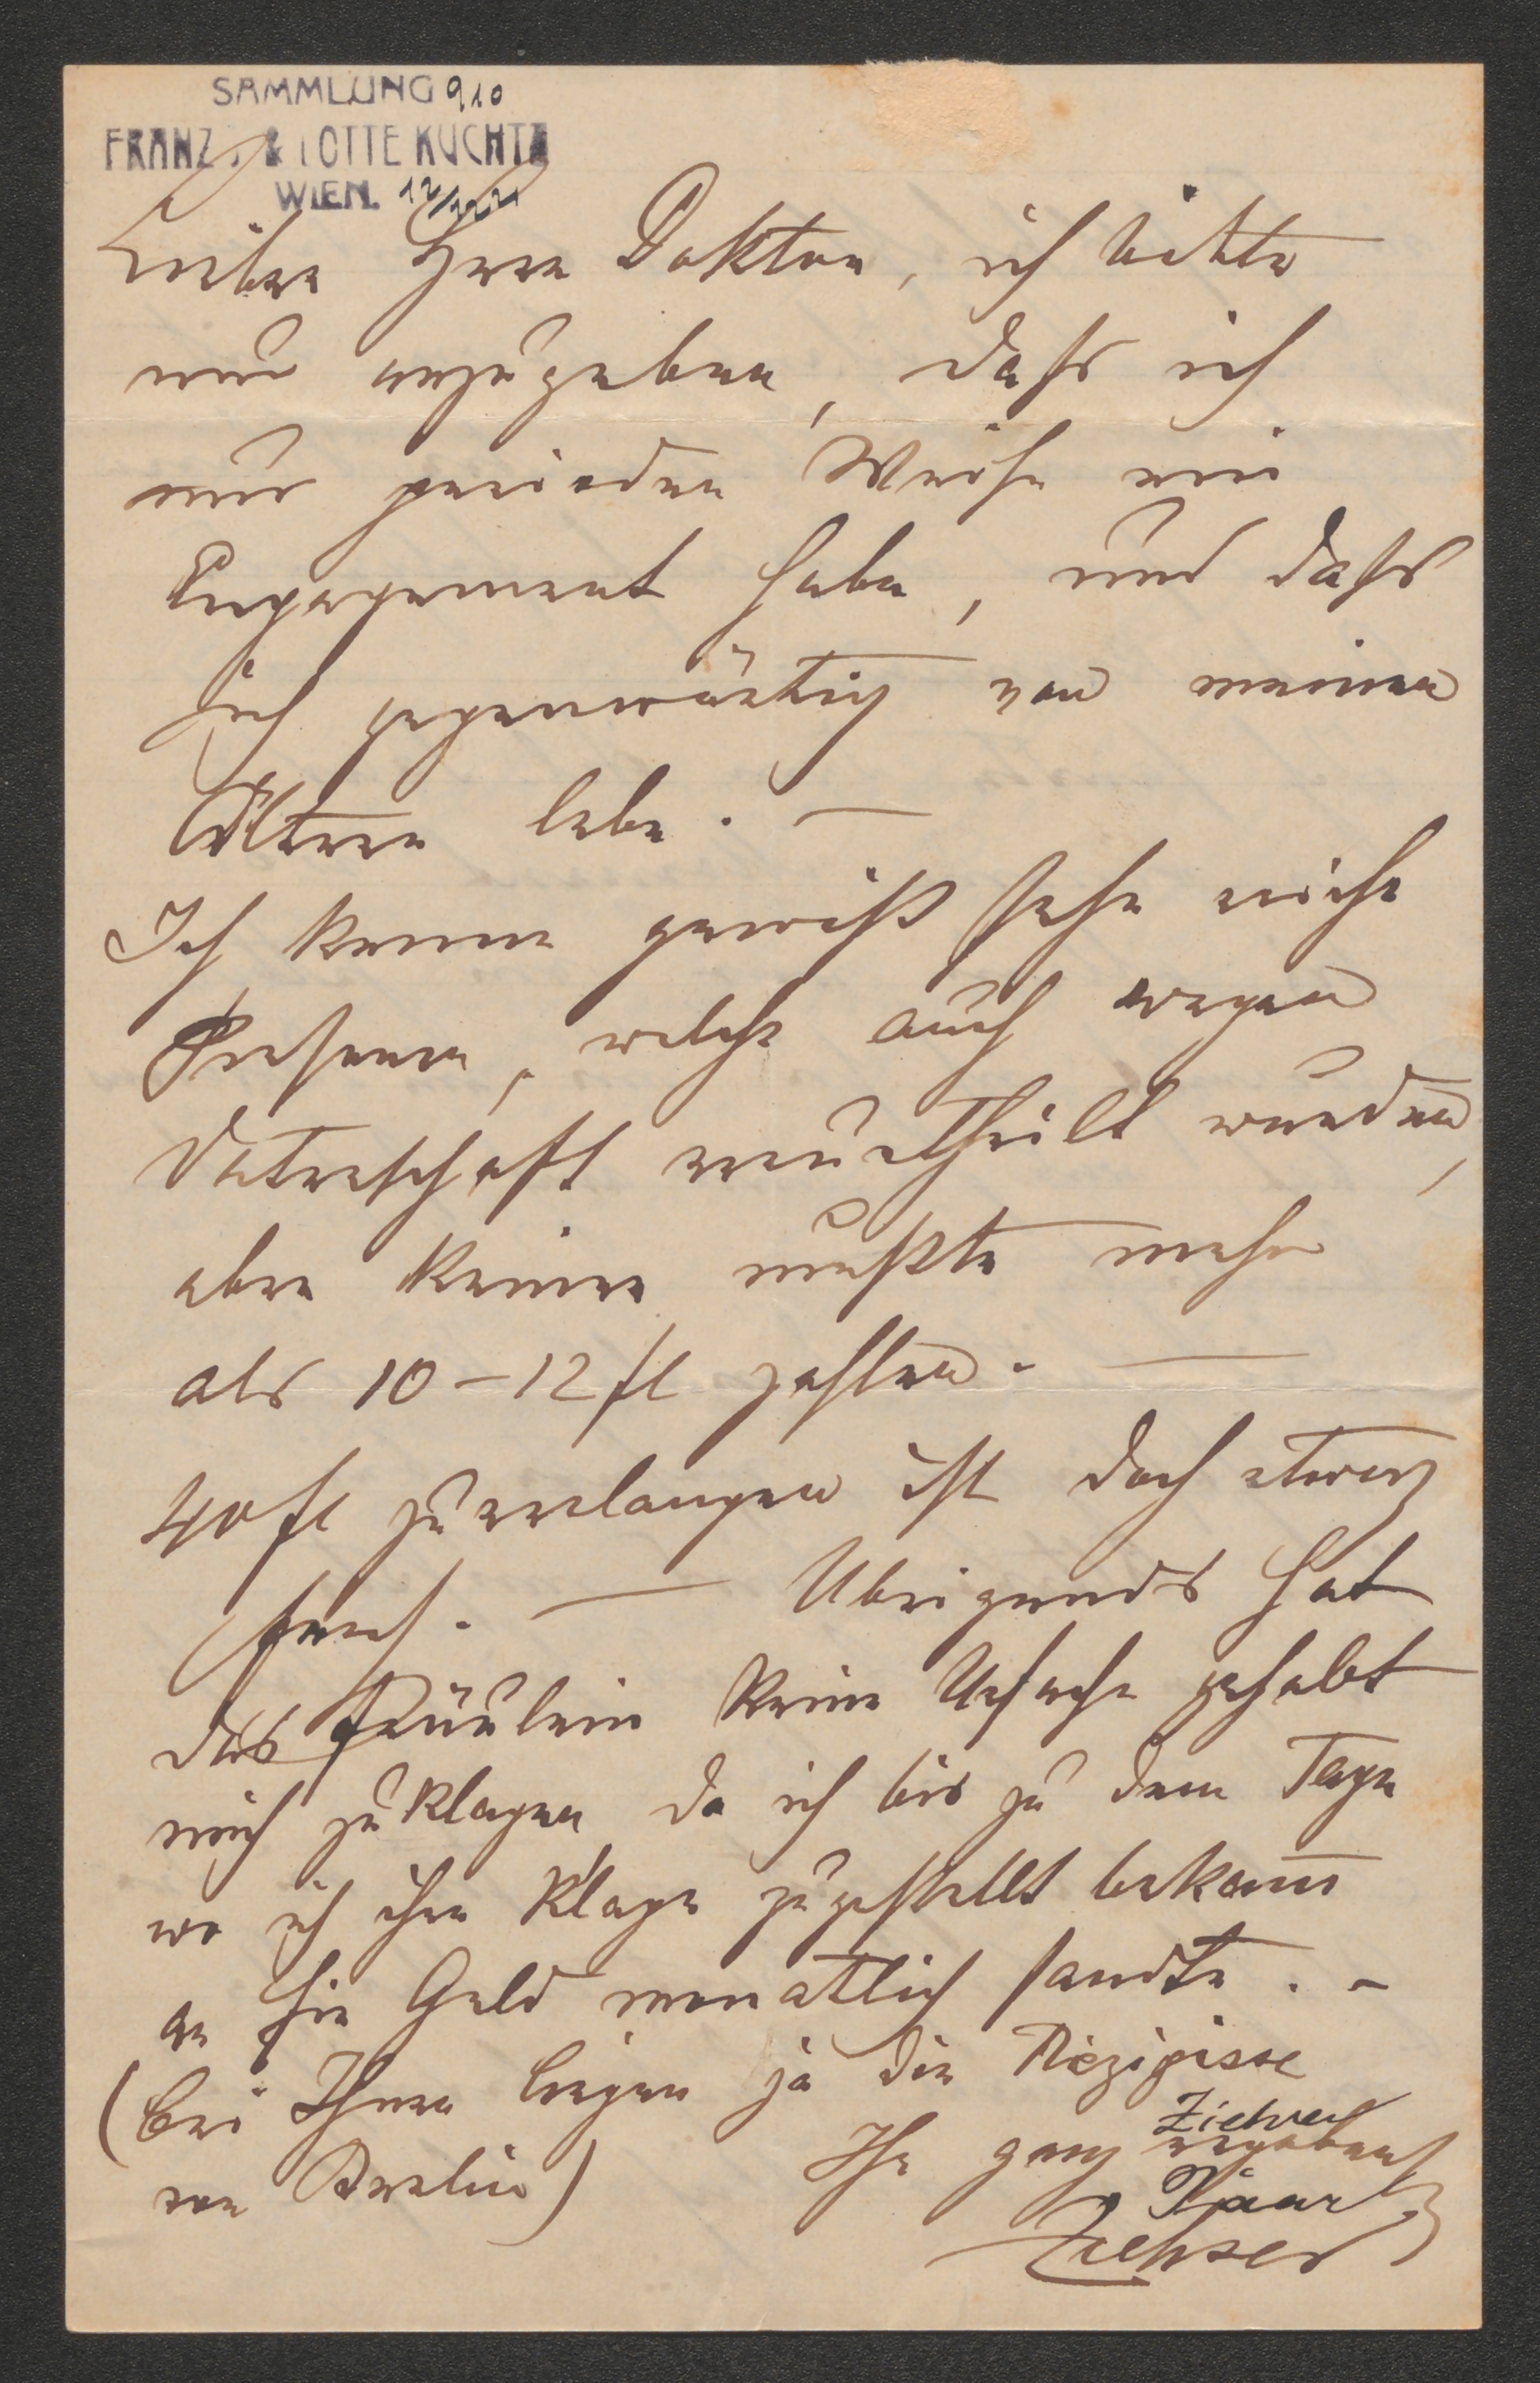 SAMMLUNG 910
FRANZ & LOTTE KUCHTA
WIEN. 12/
Lieber Herr Doktor, ich bitte
nur anzugeben, daß ich
nur perioden Weise ein
Engagement habe, und daß
ich gegenwärtig von meinen
Ältern lebe. —
Ich kenne gewiß sehr viele
Personen, welche auch wegen
Vaterschaft verurtheilt wurden,
aber keiner mußte mehr
als 10–12 fl zahlen. —
40 fl zu verlangen ist doch etwas
frech. — Übrigends hat
das Fräulein keine Ursache gehabt
mich zu klagen da ich bis zu dem Tage
wo ich ihre Klage zugestellt bekam
an sie Geld monatlich sandte. –
(bei Ihnen liegen ja die Rezipisse
von Berlin) Ihr ganz ergebenst
Ziehrer
Ziehrer